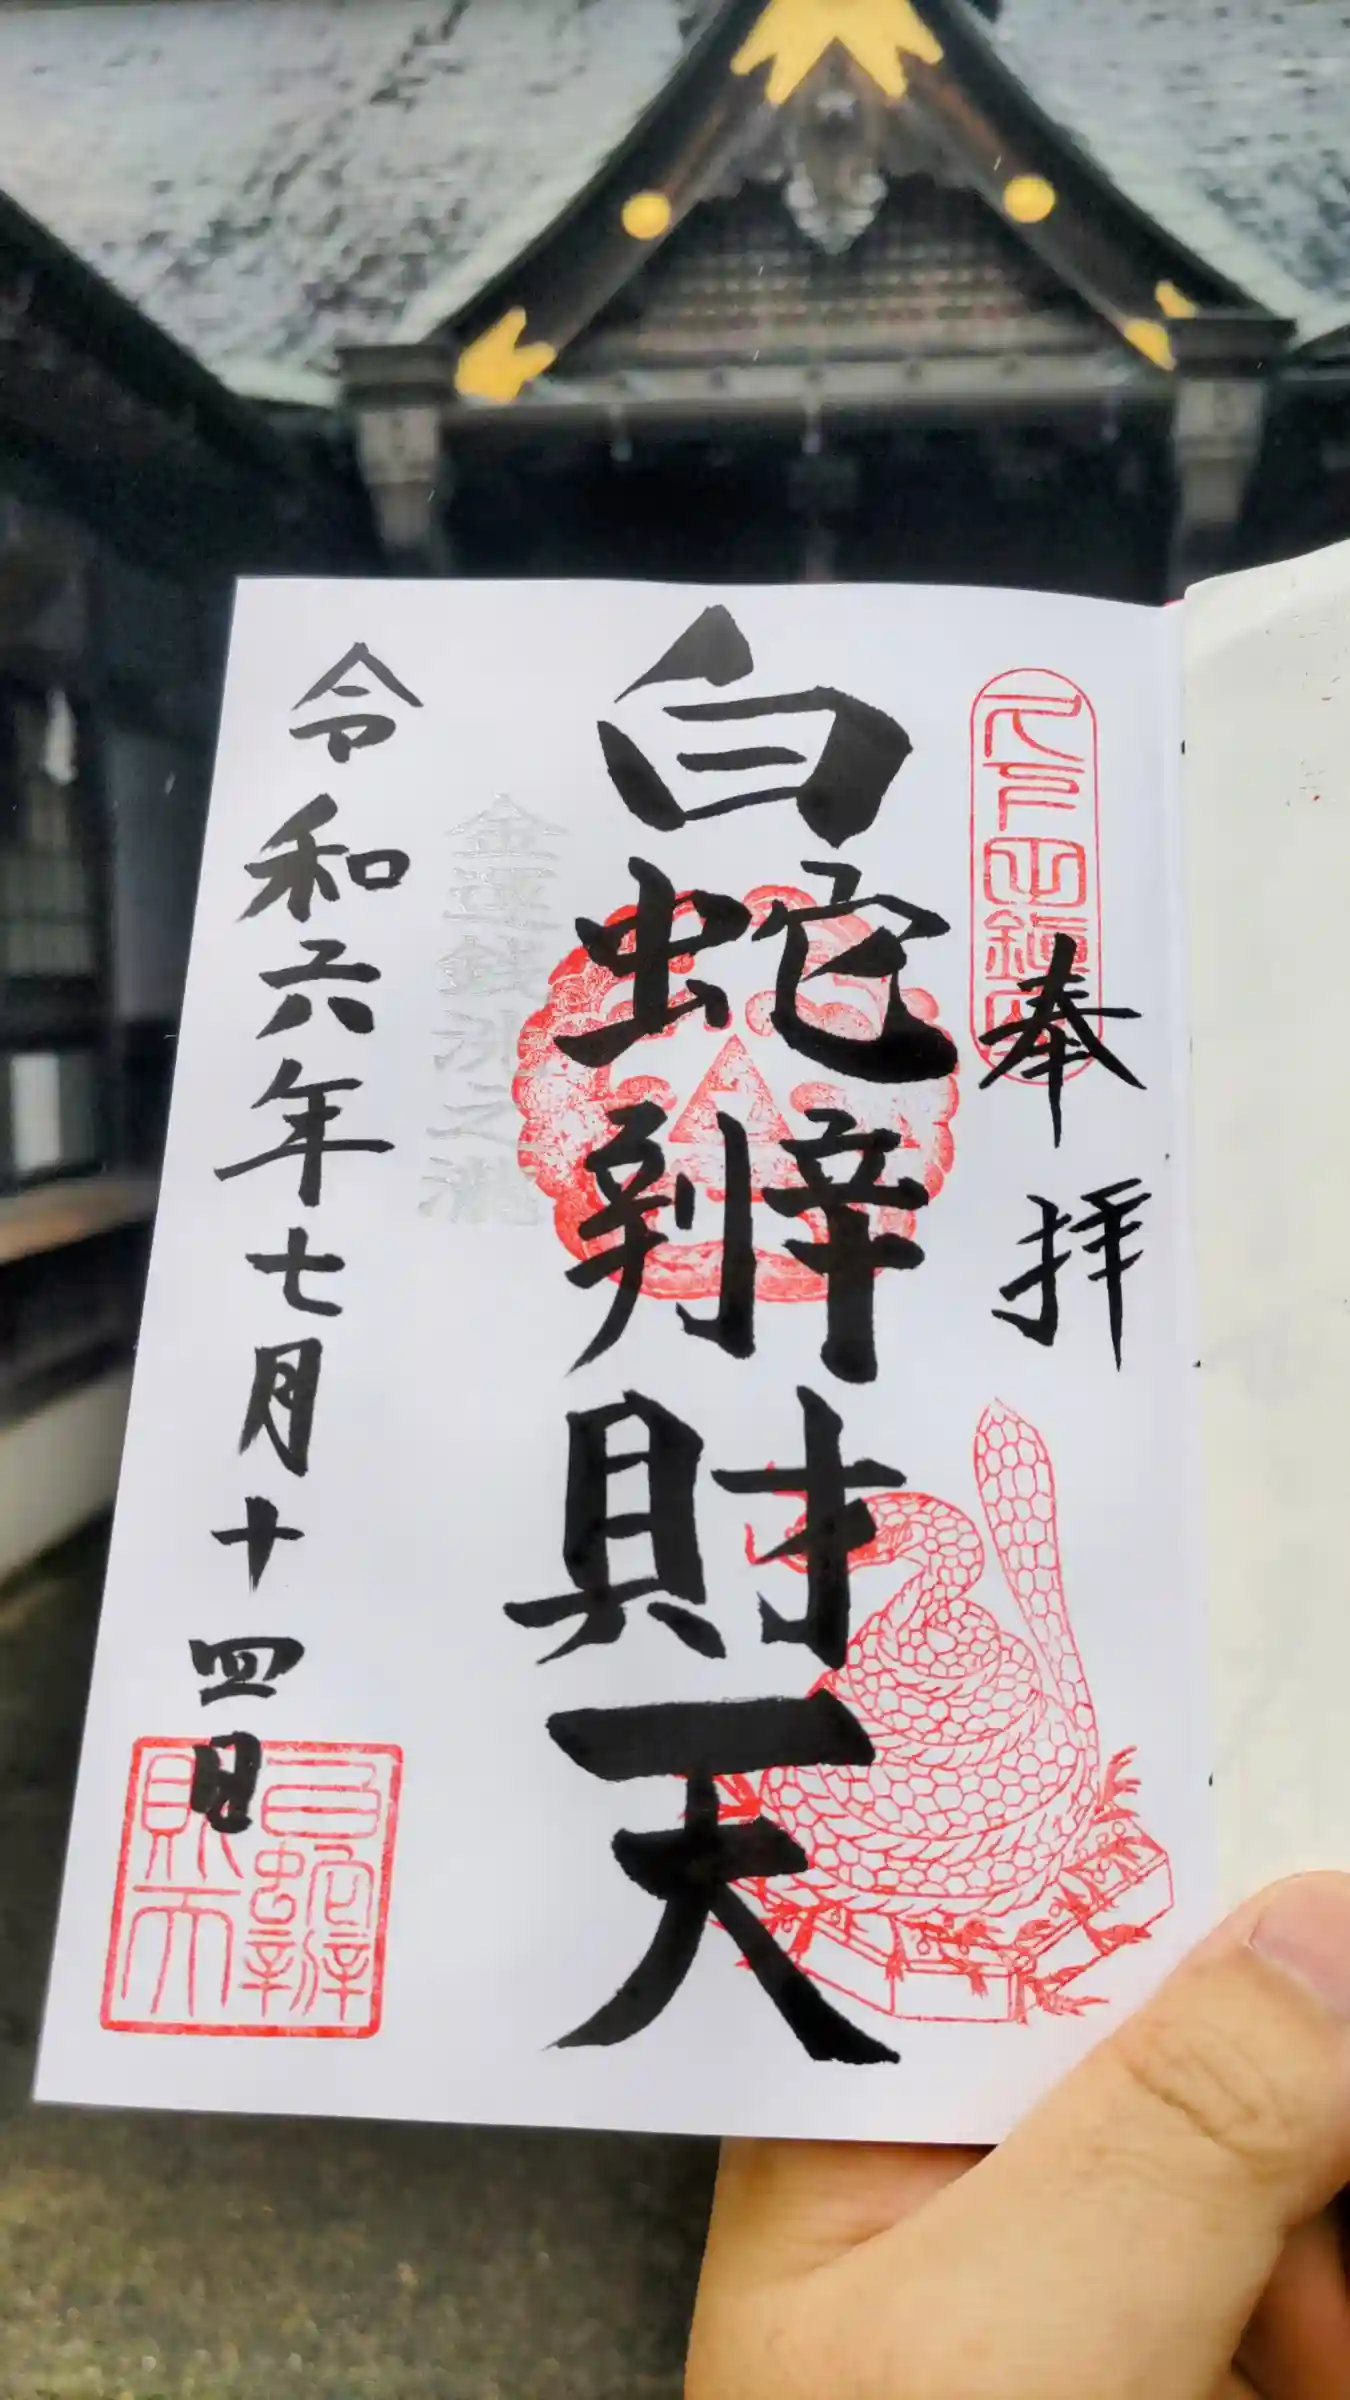 奉拝
白蛇辨財天
金運銭洗之滝
令和六年七月十四日
白蛇辨財天